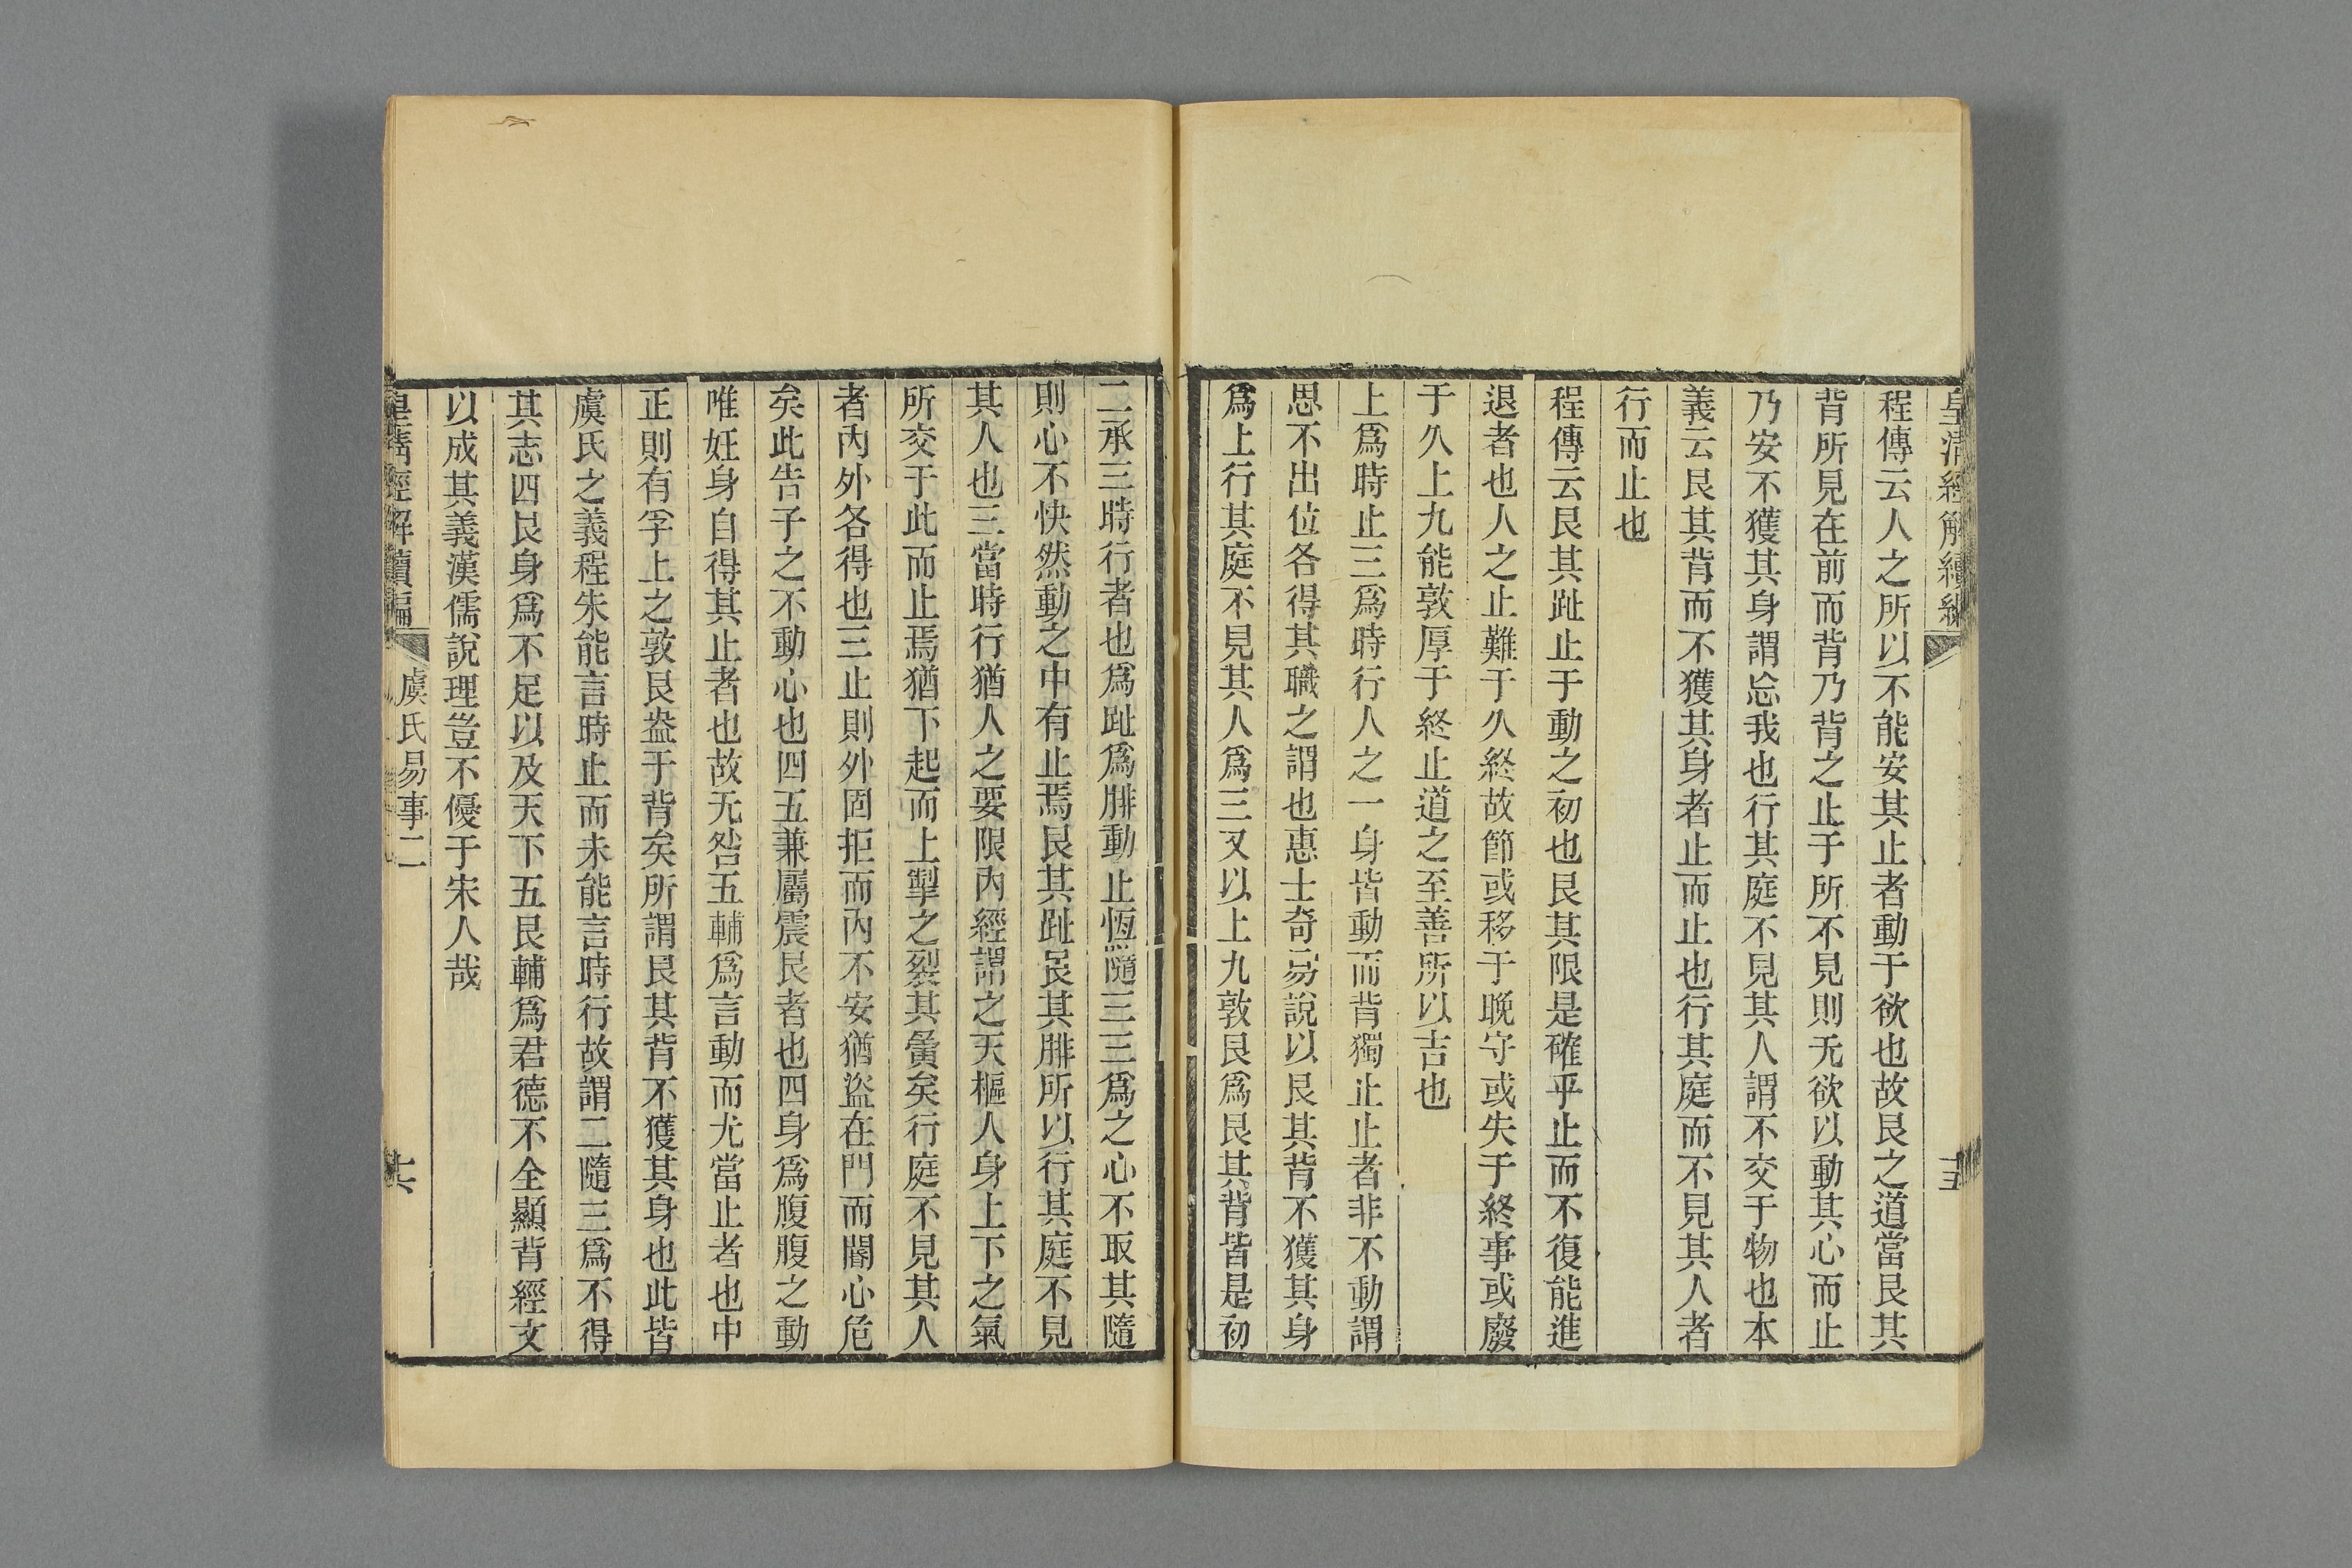 皇清經解續編
程傳云人之所以不能安其止者動于欲也故艮之道當艮其
背所見在前而背乃背之止于所不見則无欲以動其心而止
乃安不獲其身謂忘我也行其庭不見其人謂不交于物也本
義云艮其背而不獲其身者止而止也行其庭而不見其人者
行而止也
程傳云艮其趾止于動之初也艮其限是確乎止而不復能進
退者也人之止難于久終故節或移于晚守或失于終事或廢
于久上九能敦厚于終止道之至善所以吉也
上爲時止三爲時行人之一身皆動而背獨止止者非不動謂
思不出位各得其職之謂也惠士奇易說以艮其背不獲其身
爲上行其庭不見其人爲三又以上九敦艮爲艮其背皆是初
二承三時行者也爲趾爲腓動止恆隨三三爲之心不取其隨
則心不快然動之中有止焉艮其趾艮其腓所以行其庭不見
其人也三當時行猶人之要限內經謂之天樞人身上下之氣
所交于此而止焉猶下起而上掣之裂其夤矣行庭不見其人
者內外各得也三止則外固拒而內不安猶盜在門而閽心危
矣此告子之不動心也四五兼屬震艮者也四身爲腹腹之動
唯妊身自得其止者也故无咎五輔爲言動而尤當止者也中
正則有孚上之敦艮盎于背矣所謂艮其背不獲其身也此皆
虞氏之義程朱能言時止而未能言時行故謂二隨三爲不得
其志四艮身爲不足以及天下五艮輔爲君德不全顯背經文
以成其義漢儒說理豈不優于宋人哉
皇清經解續編 虞氏易事二